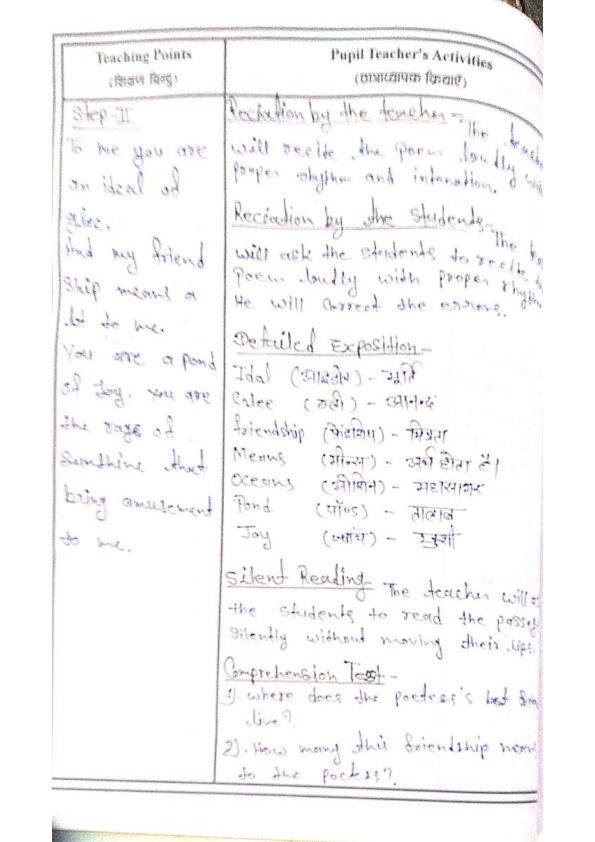 Teaching Points
(शिक्षण बिन्दु)
Step-II
To me you are
an ideal of
glee.
And my friend
ship means a
lot to me.
You are a pond
of Joy. You are
the rays of
Sunshine that
bring amusement
to me.
Pupil Teacher's Activities
(छात्राध्यापक क्रियाएँ)
Reciation by the teacher - The
will recite the Poem loudly
proper rhythm and intonation.
Reciation by the students - The
will ask the students to recite
Poem loudly with proper
He will correct the errors.
Detailed Exposition-
Idal (आइडोल) - मूर्ति
Calee (ग्ली) - आनन्द
friendship (फ्रेंडशिप) - मित्रता
Means (मीन्स) - अर्थ होता है।
Oceans (ओशिन) - महासागर
Pond (पॉण्ड) - तालाब
Joy (ज्वॉय) - खुशी
Silent Reading - The teacher will
the students to read the
silently without moving their lips.
Comprehension Test -
1). where does the poetess's best
live?
2). How many this friendship
to the poetess?